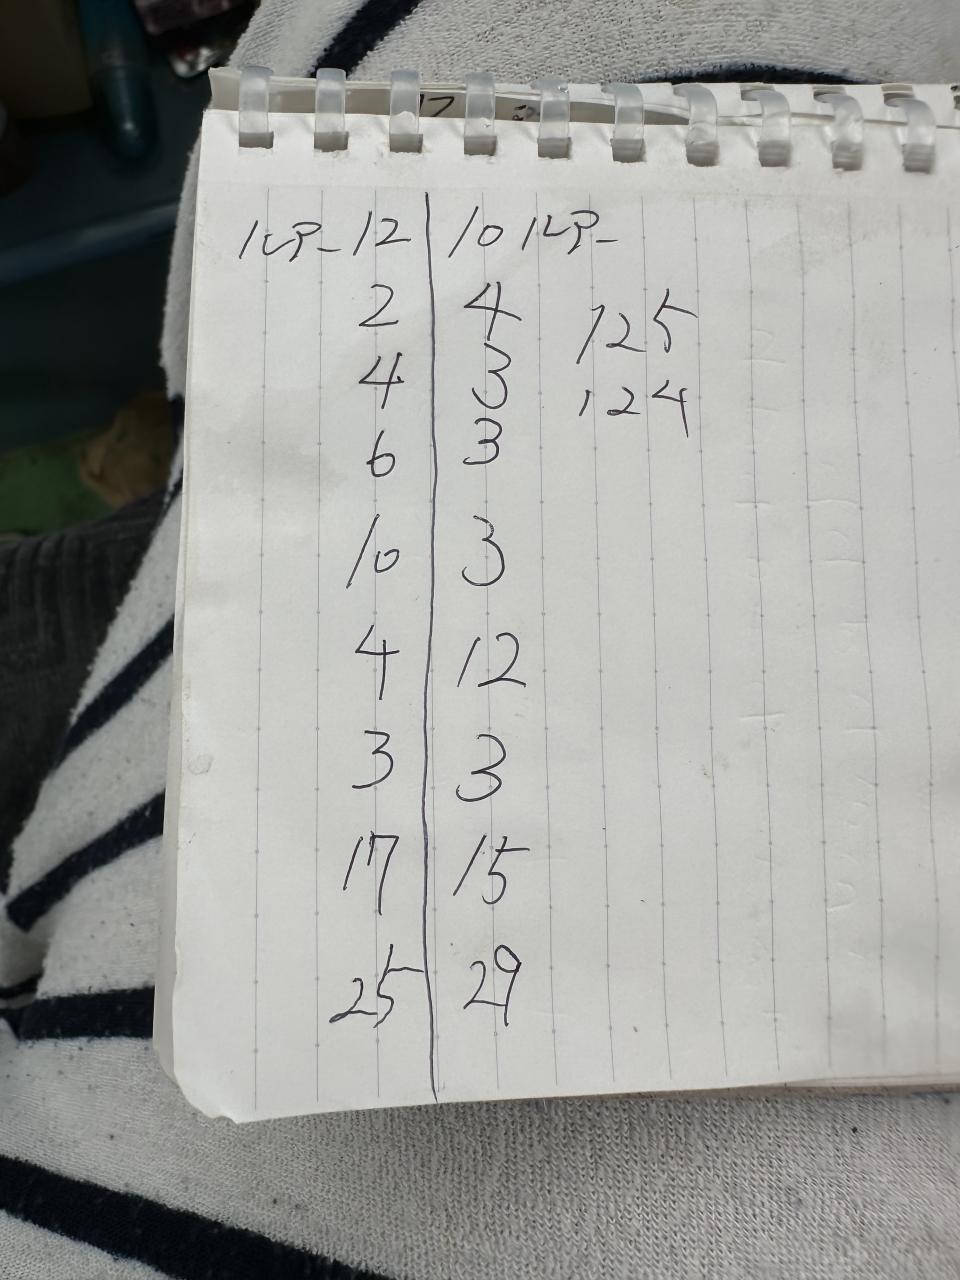 ルアー 12 10 ルアー
2 4 125
4 3 124
6 3
10 3
4 12
3 3
17 15
25 29